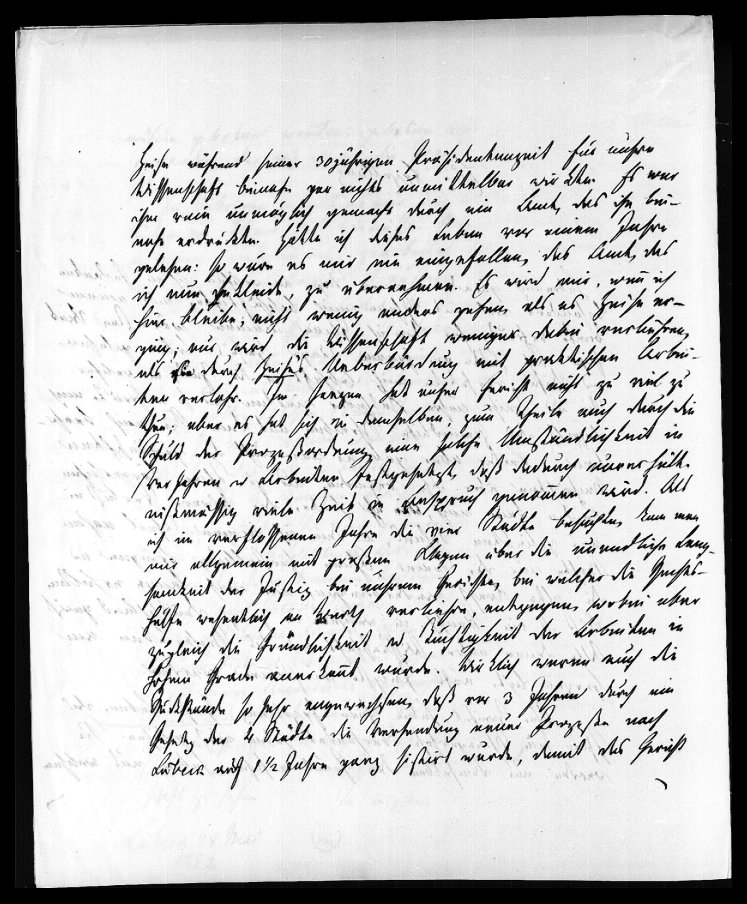 Heise während seiner 30jährigen Präsidentenzeit für unsere
Wissenschaft beinahe gar nichts unmittelbar wirkte. Es war
ihm rein unmöglich gemacht durch ein Amt, das ihn bei-
nahe erdrückte. Hätte ich dieses Leben vor einem Jahre
gelesen: so wäre es mir nie eingefallen, das Amt, das
ich nun bekleide, zu übernehmen. Es wird mir, wenn ich
hier bleibe, nicht wenig anders gehen, als es Heise er-
ging; nur wird die Wissenschaft weniger dabei verliehren,
als sie durch Heise's Ueberbürdung mit praktischen Arbei-
ten verlohr. Im Ganzen hat unser Gericht nicht zu viel zu
thun; aber es hat sich in demselben, zum Theile auch durch die
Schuld der Prozeßordnung eine solche Umständlichkeit in
Verfahren u Arbeiten festgesetzt, daß dadurch unverhält-
nißmässig viele Zeit in Anspruch genommen wird. Als
ich im verflossenen Jahre die vier Städte besuchte, kam man
mir allgemein mit großen Klagen über die unendliche Lang-
samkeit der Justiz bei unserem Gerichte, bei welcher die Rechts-
hülfe wesentlich an Werth verliehre, entgegen, wobei aber
zugleich die Gründlichkeit u Tüchtigkeit der Arbeiten in
hohem Grade anerkannt wurde. Wirklich waren auch die
Rückstände so sehr angewachsen, daß vor 3 Jahren durch ein
Gesetz der 4 Städte die Versendung neuer Prozeße nach
Lübeck auf 1½ Jahre ganz sistirt wurde, damit das Gericht